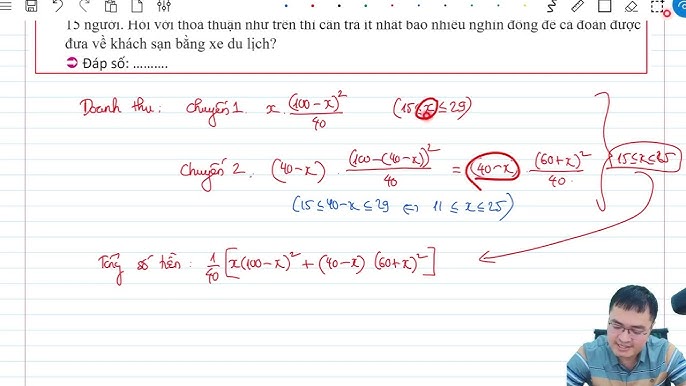 15 người. Hỏi với thỏa thuận như trên thì cần trả ít nhất bao nhiêu nghìn đồng để cả đoàn được
đưa về khách sạn bằng xe du lịch?
➲ Đáp số: ..........
Doanh thu: chuyến 1. x. (100-x)²/40 (15≤x≤29)
Chuyến 2: (40-x). (100-(40-x))²/40 = (40-x). (60+x)²/40. 15≤x≤25
(15≤40-x≤29 ⇔ 11≤x≤25)
Tổng số tiền: 1/40 [x(100-x)² + (40-x) (60+x)²]